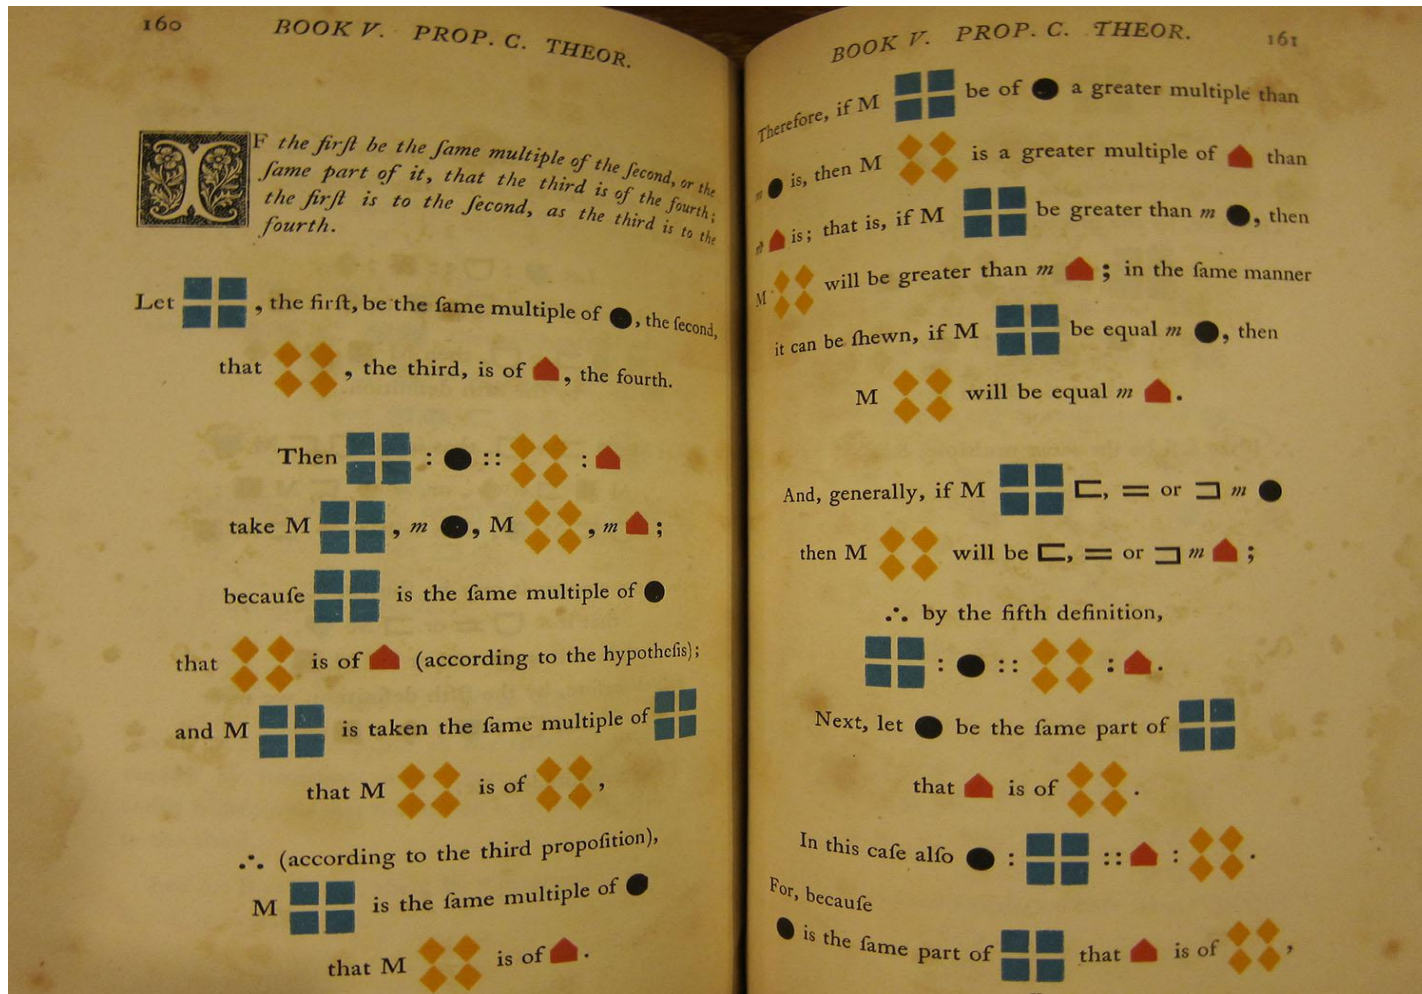 160
BOOK V. PROP. C. THEOR.
IF the firſt be the ſame multiple of the ſecond, or the
ſame part of it, that the third is of the fourth;
the firſt is to the ſecond, as the third is to the
fourth.
Let , the firſt, be the ſame multiple of , the ſecond,
that , the third, is of , the fourth.
Then : :: :
take M , m , M , m ;
becauſe is the ſame multiple of
that is of (according to the hypotheſis);
and M is taken the ſame multiple of
that M is of ,
∴ (according to the third propoſition),
M is the ſame multiple of
that M is of .
BOOK V. PROP. C. THEOR.
161
Therefore, if M be of a greater multiple than
m is, then M is a greater multiple of than
m is; that is, if M be greater than m , then
M will be greater than m ; in the ſame manner
it can be ſhewn, if M be equal m , then
M will be equal m .
And, generally, if M ⊏, = or ⊐ m
then M will be ⊏, = or ⊐ m ;
∴ by the fifth definition,
: :: : .
Next, let be the ſame part of
that is of .
In this caſe alſo : :: : .
For, becauſe
is the ſame part of that is of ,